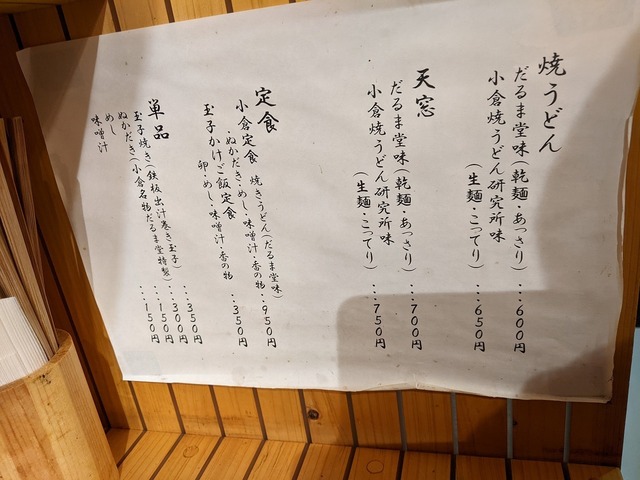 焼うどん
だるま堂味(乾麺・あっさり)…600円
小倉焼うどん研究所味
(生麺・こってり)…650円
天窓
だるま堂味(乾麺・あっさり)…700円
小倉焼うどん研究所味
(生麺・こってり)…750円
定食
小倉定食 焼きうどん(だるま堂味)
・ぬかだき・めし・味噌汁・香の物…950円
玉子かけご飯定食
卵・めし・味噌汁・香の物…350円
単品
玉子焼き(鉄板出汁巻き玉子)…350円
ぬかだき(小倉名物だるま堂特製)…300円
めし…150円
味噌汁…150円